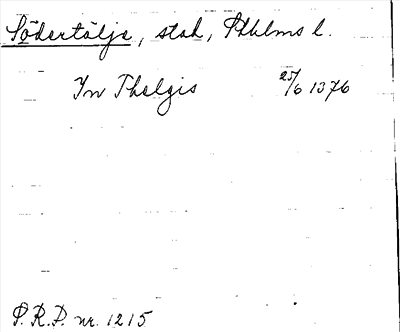 Södertälje, stad, Sthlms l.
In Thelgis 25/6 1376
P.R.P. nr. 1215